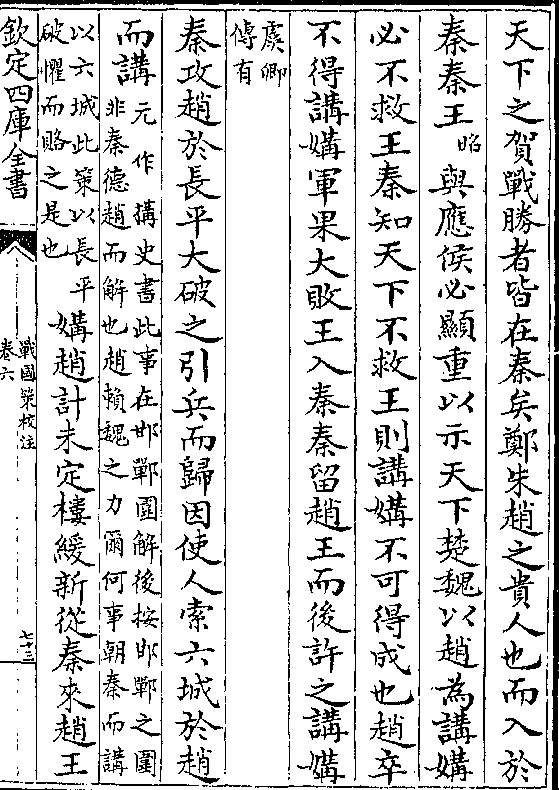 天下之賀戰勝者皆在秦矣鄭朱趙之貴人也而入於
秦秦王昭與應侯必顯重以示天下楚魏以趙為講媾
必不救王秦知天下不救王則講媾不可得成也趙卒
不得講媾軍果大敗王入秦秦留趙王而後許之講媾
虞卿
傳有
秦攻趙於長平大破之引兵而歸因使人索六城於趙
而講元作搆史書此事在邯鄲圍解後按邯鄲之圍
非秦德趙而解也趙賴魏之力爾何事朝秦而講
以六城此策以長平
破懼而賂之是也
媾趙計未定樓緩新從秦來趙王
欽定四庫全書
戰國策校注
卷六
七十三